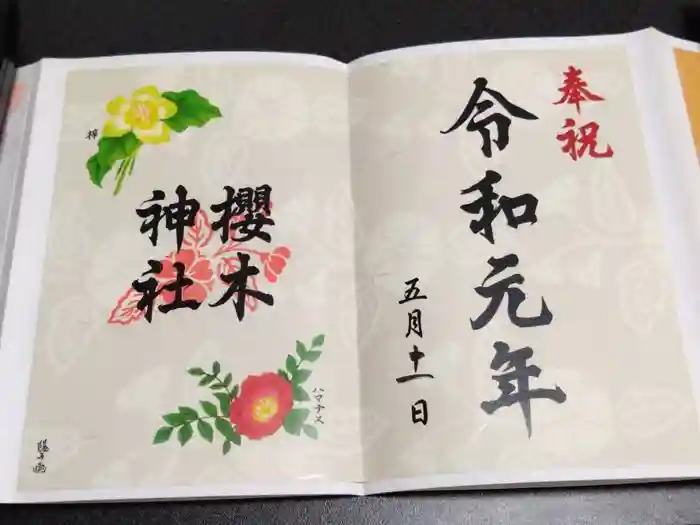 奉祝
令和元年
五月十一日
梓
櫻木
神社
ハマナス